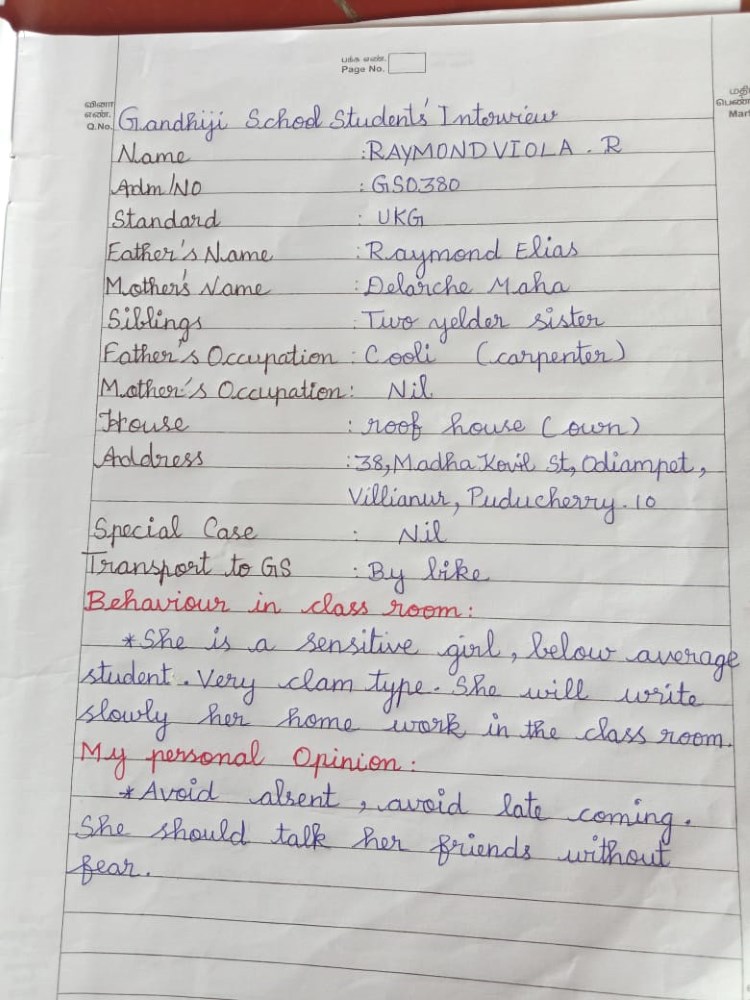 பக்க எண்.
Page No.
வினா
எண்.
Q.No.
மதி
பெண்
Mar
Gandhiji School Students' Interview
Name : RAYMOND VIOLA . R
Adm/NO : GS0380
Standard : UKG
Father's Name : Raymond Elias
Mother's Name : Delarche Maha
Siblings : Two yelder sister
Father's Occupation : Cooli (carpenter)
Mother's Occupation : Nil
House : roof house (own)
Address : 38, Madha Kovil St, Odiampet,
Villianur, Puducherry. 10
Special Case : Nil
Transport to GS : By bike
Behaviour in class room :
* She is a sensitive girl, below average
student. Very clam type. She will write
slowly her home work in the class room.
My personal Opinion :
* Avoid absent, avoid late coming.
She should talk her friends without
fear.